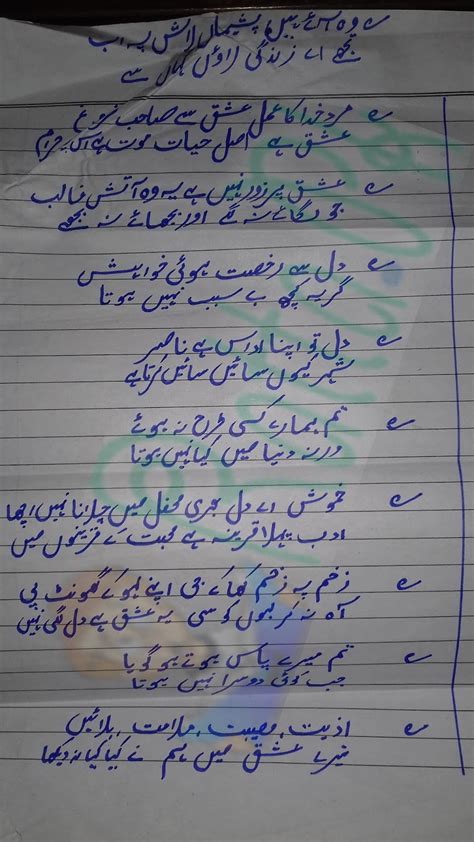 وہ آئے ہیں پشیماں لاش پہ اب
تجھے اے زندگی لاؤں کہاں سے
مرد خدا کا عمل عشق سے صاحب فروغ
عشق ہے اصل حیات موت ہے اس پر حرام
عشق پر زور نہیں ہے یہ وہ آتش غالب
جو لگائے نہ لگے اور بجھائے نہ بجھے
دل سے رخصت ہوئی خواہش
گریہ کچھ بے سبب نہیں ہوتا
دل تو اپنا اداس ہے ناصر
شہر کیوں سائیں سائیں کرتا ہے
تم ہمارے کسی طرح نہ ہوئے
ورنہ دنیا میں کیا نہیں ہوتا
خموش اے دل بھری محفل میں چلانا نہیں اچھا
ادب پہلا قرینہ ہے محبت کے قرینوں میں
زخم پہ زخم کھا کے جی اپنے لہو کے گھونٹ پی
آہ نہ کر لبوں کو سی یہ عشق ہے دل لگی نہیں
تم میرے پاس ہوتے ہو گویا
جب کوئی دوسرا نہیں ہوتا
اذیت، مصیبت، ملامت، بلائیں
تیرے عشق میں ہم نے کیا کیا نہ دیکھا